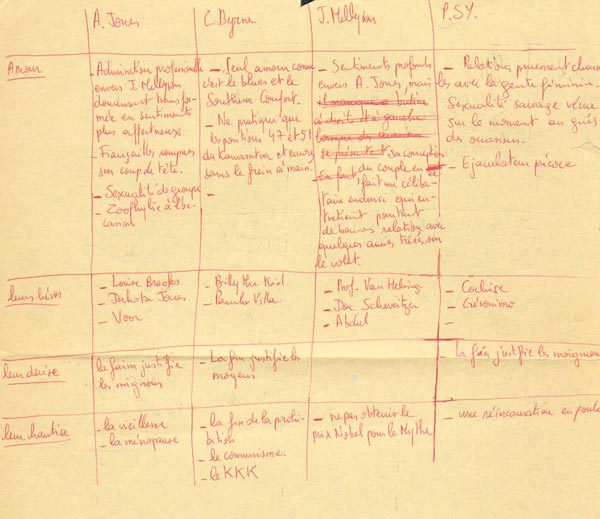 A. Jones
C. Byrne
J. Mellyson
P. SY.
Amour
- Admiration professionnelle
envers J. Mellyson
doucement transfor-
mée en sentiments
plus affectueux.
- Fiançailles rompues
sur coup de tête.
- Sexualité de groupe
- Zoophylie à l'oc-
casion
- Seul amour connu
c'est le blues et le
Southern Comfort.
- Ne pratique que
les positions 47 et 51
du Kamasutra, et encore
sans le frein à main.
-
- Sentiments profonds
envers A. Jones, mais
à droite et à gauche
se présentent sa conception
En fait du couple en
fait un céliba-
taire endurci qui en-
tretient pourtant
de bonnes relation avec
quelques amies triées sur
le volet.
- Relations purement charnel
les avec la gente féminin
Sexualité sauvage vécue
sur le moment au grés
des occasions.
- Ejaculateur précoce
leurs héros
- Louise Brooks
- Dakota Jones
- Voor
- Billy the Kid.
- Pancho Villa
- Prof. Van Helsing
- Doc Schweitzer
- Abdul
- Cochise
- Géronimo
-
leur devise
la faim justifie
les mignons
- La fin justifie les
moyens
- la faim justifie les moignons
leur hantise
- la vieillesse
- la ménopause
- la fin de la prohi-
bition
- le communisme
- le KKK
- ne pas obtenir le
prix Nobel pour le Mythe
- une réincarnation en poule